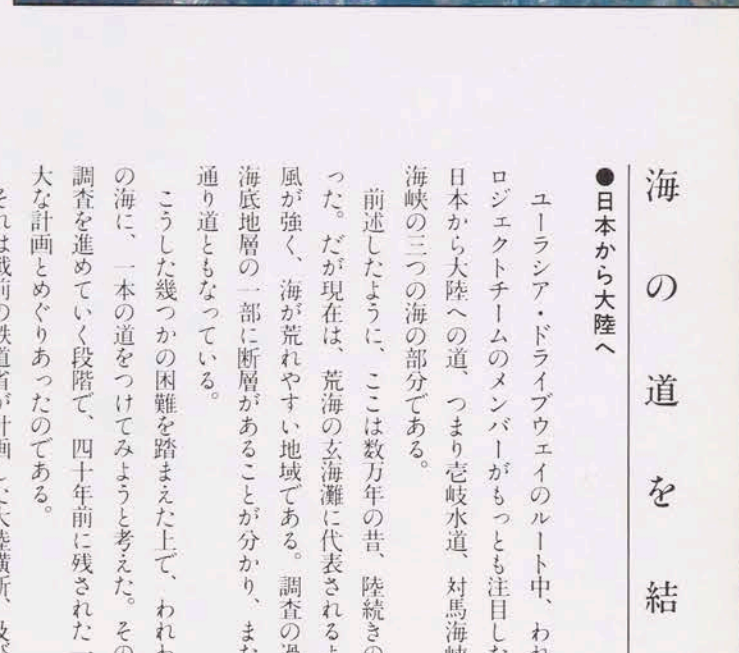 海の道を結
●日本から大陸へ
ユーラシア・ドライブウェイのルート中、われ
ロジェクトチームのメンバーがもっとも注目した
日本から大陸への道、つまり壱岐水道、対馬海峡
海峡の三つの海の部分である。
前述したように、ここは数万年の昔、陸続きの
った。だが現在は、荒海の玄海灘に代表されるよ
風が強く、海が荒れやすい地域である。調査の過
海底地層の一部に断層があることが分かり、また
通り道ともなっている。
こうした幾つかの困難を踏まえた上で、われわ
の海に、一本の道をつけてみようと考えた。その
調査を進めていく段階で、四十年前に残された一
大な計画とめぐりあったのである。
それは戦前の鉄道省が計画した大陸横断、及び